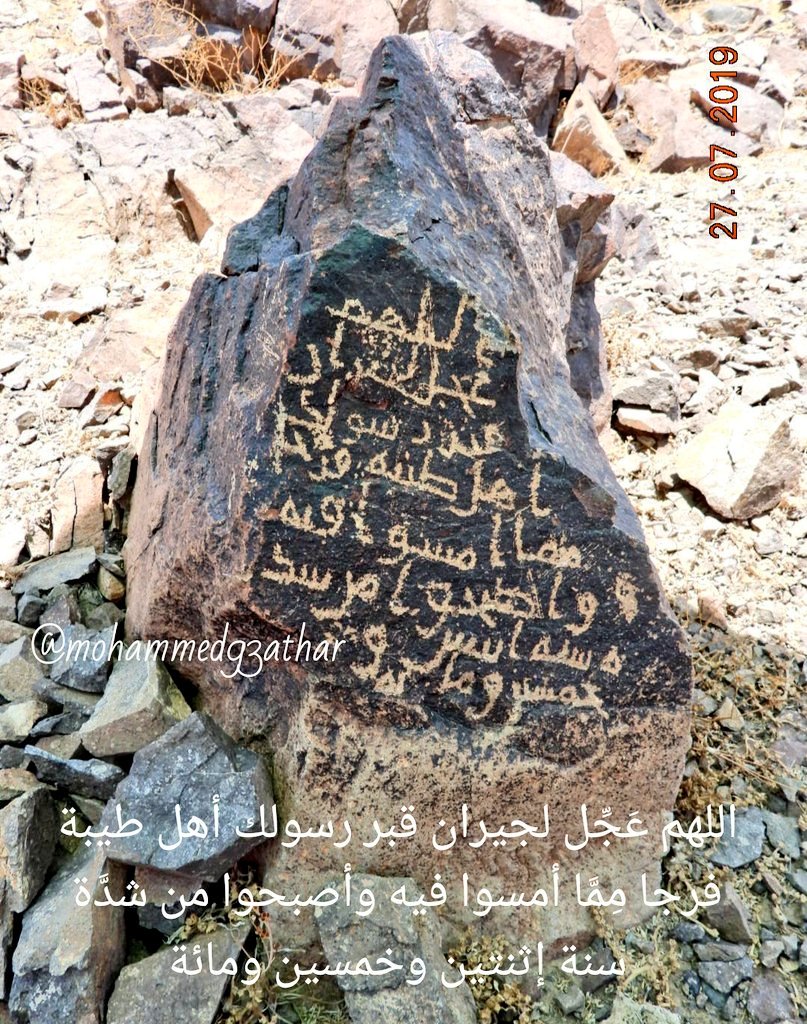 27.07.2019
اللهم
عجل لجيران
قبر رسولك
اهل طيبه فرجا
مما امسوا فيه
واصبحوا من شد
ه سنه اثنتين و
خمسين ومائه
@mohammedg3athar
اللهم عَجِّل لجيران قبر رسولك أهل طيبة
فرجا مِمَّا أمسوا فيه وأصبحوا من شدَّة
سنة إثنتين وخمسين ومائة